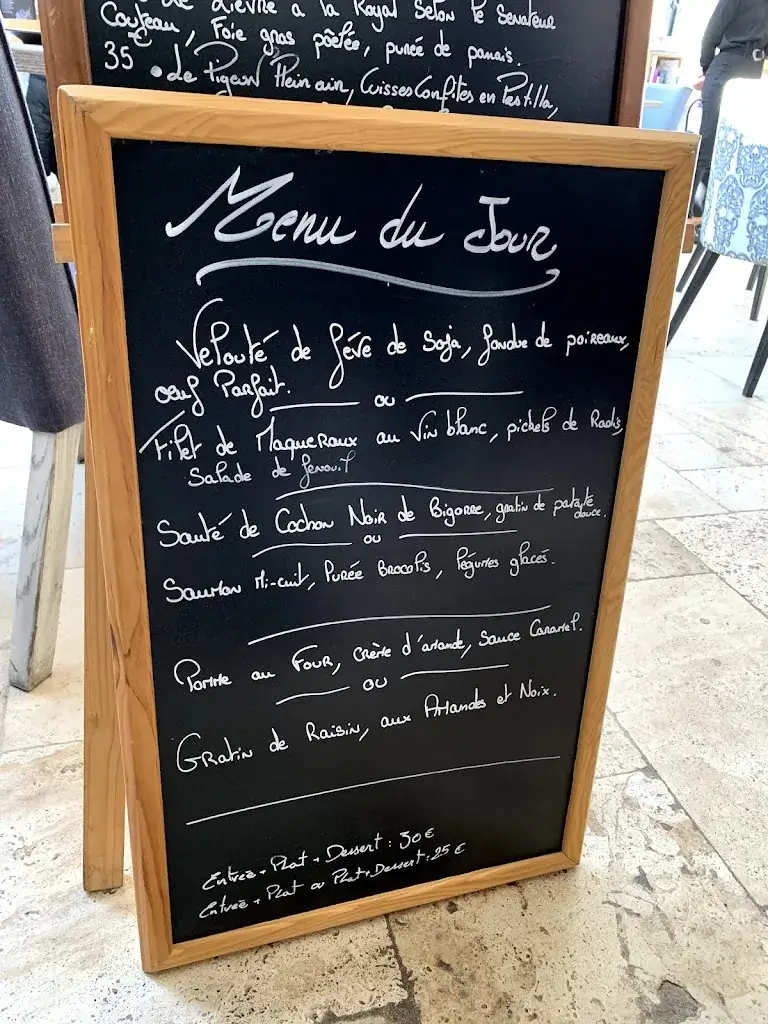 de Lièvre à la Royal Selon le Senateur
Couteau, Foie gras pôêlée, purée de panais.
35€ • de Pigeon Plein air, Cuisses Confites en Pastilla,
Menu du Jour
Velouté de fève de Soja, fondue de poireaux,
œuf Parfait.
ou
Filet de Maqueraux au Vin blanc, pickels de Radis,
Salade de fenouil
Sauté de Cochon Noir de Bigorre, gratin de patate
douce.
ou
Saumon Mi-cuit, Purée Brocolis, légumes glacés.
Pomme au Four, crème d'amande, Sauce Caramel.
ou
Gratin de Raisin, aux Amandes et Noix.
Entrée + Plat + Dessert : 30 €
Entrée + Plat ou Plat + Dessert : 25 €